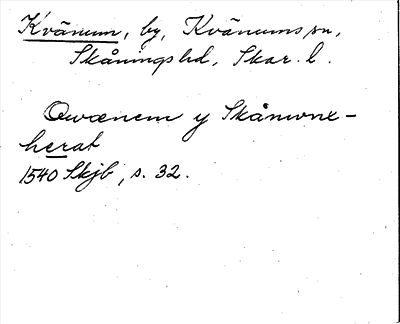 Kvänum, by, Kvänums sn,
Skånings hd, Skar. l.
Qwænem y Skånwne-
herat
1540 Skjb, s. 32.